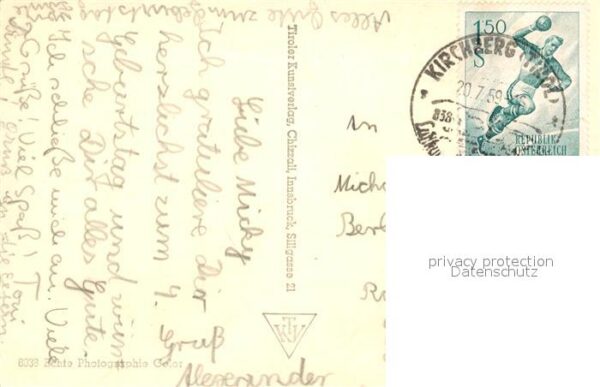 Liebe Micky
Ich gratuliere Dir
herzlichst zum 4.
Geburtstag und wün
sche Dir alles Gute.
Gruß
Alexander
Ich schließe mich an. Viele
Grüße! Viel Spaß! Toni
Alles Gute zum Geburtstag
Tiroler Kunstverlag, Chizzali, Innsbruck, Sillgasse 21
8038 Echte Photographie Color
TKV
An
Mich
Berl
1.50
S
REPUBLIK
ÖSTERREICH
KIRCHBERG (TIROL)
20.7.59
privacy protection
Datenschutz